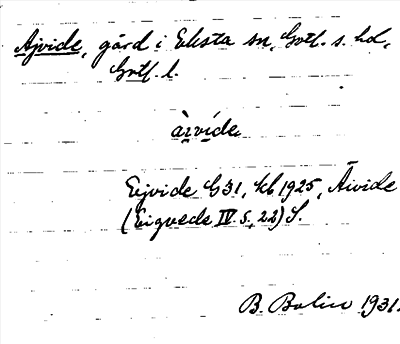 Ajvide, gård i Eksta sn, Gotl. s. hd,
Gotl. l.
àɪvíde
Eijvide G31, Kb 1925, Äivide
(Eigvede IV. s, 22) S.
B. Bolin 1931.